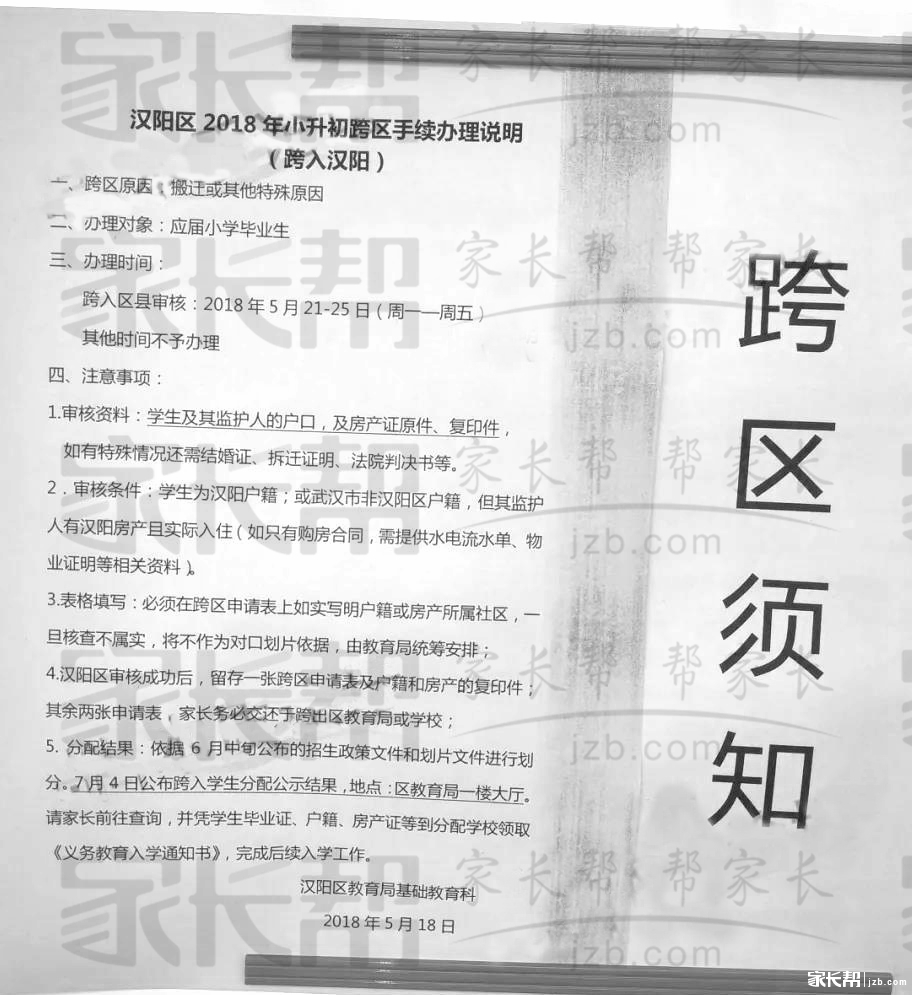 汉阳区 2018 年小升初跨区手续办理说明
（跨入汉阳）
一、跨区原因：搬迁或其他特殊原因
二、办理对象：应届小学毕业生
三、办理时间：
跨入区县审核：2018 年 5 月 21-25 日（周一—周五）
其他时间不予办理
四、注意事项：
1.审核资料：学生及其监护人的户口，及房产证原件、复印件，
如有特殊情况还需结婚证、拆迁证明、法院判决书等。
2．审核条件：学生为汉阳户籍；或武汉市非汉阳区户籍，但其监护
人有汉阳房产且实际入住（如只有购房合同，需提供水电流水单、物
业证明等相关资料）。
3.表格填写：必须在跨区申请表上如实写明户籍或房产所属社区，一
旦核查不属实，将不作为对口划片依据，由教育局统筹安排；
4.汉阳区审核成功后，留存一张跨区申请表及户籍和房产的复印件；
其余两张申请表，家长务必交还于跨出区教育局或学校；
5. 分配结果：依据 6 月中旬公布的招生政策文件和划片文件进行划
分。7 月 4 日公布跨入学生分配公示结果，地点：区教育局一楼大厅。
请家长前往查询，并凭学生毕业证、户籍、房产证等到分配学校领取
《义务教育入学通知书》，完成后续入学工作。
汉阳区教育局基础教育科
2018 年 5 月 18 日
跨区须知
家长帮 jzb.com